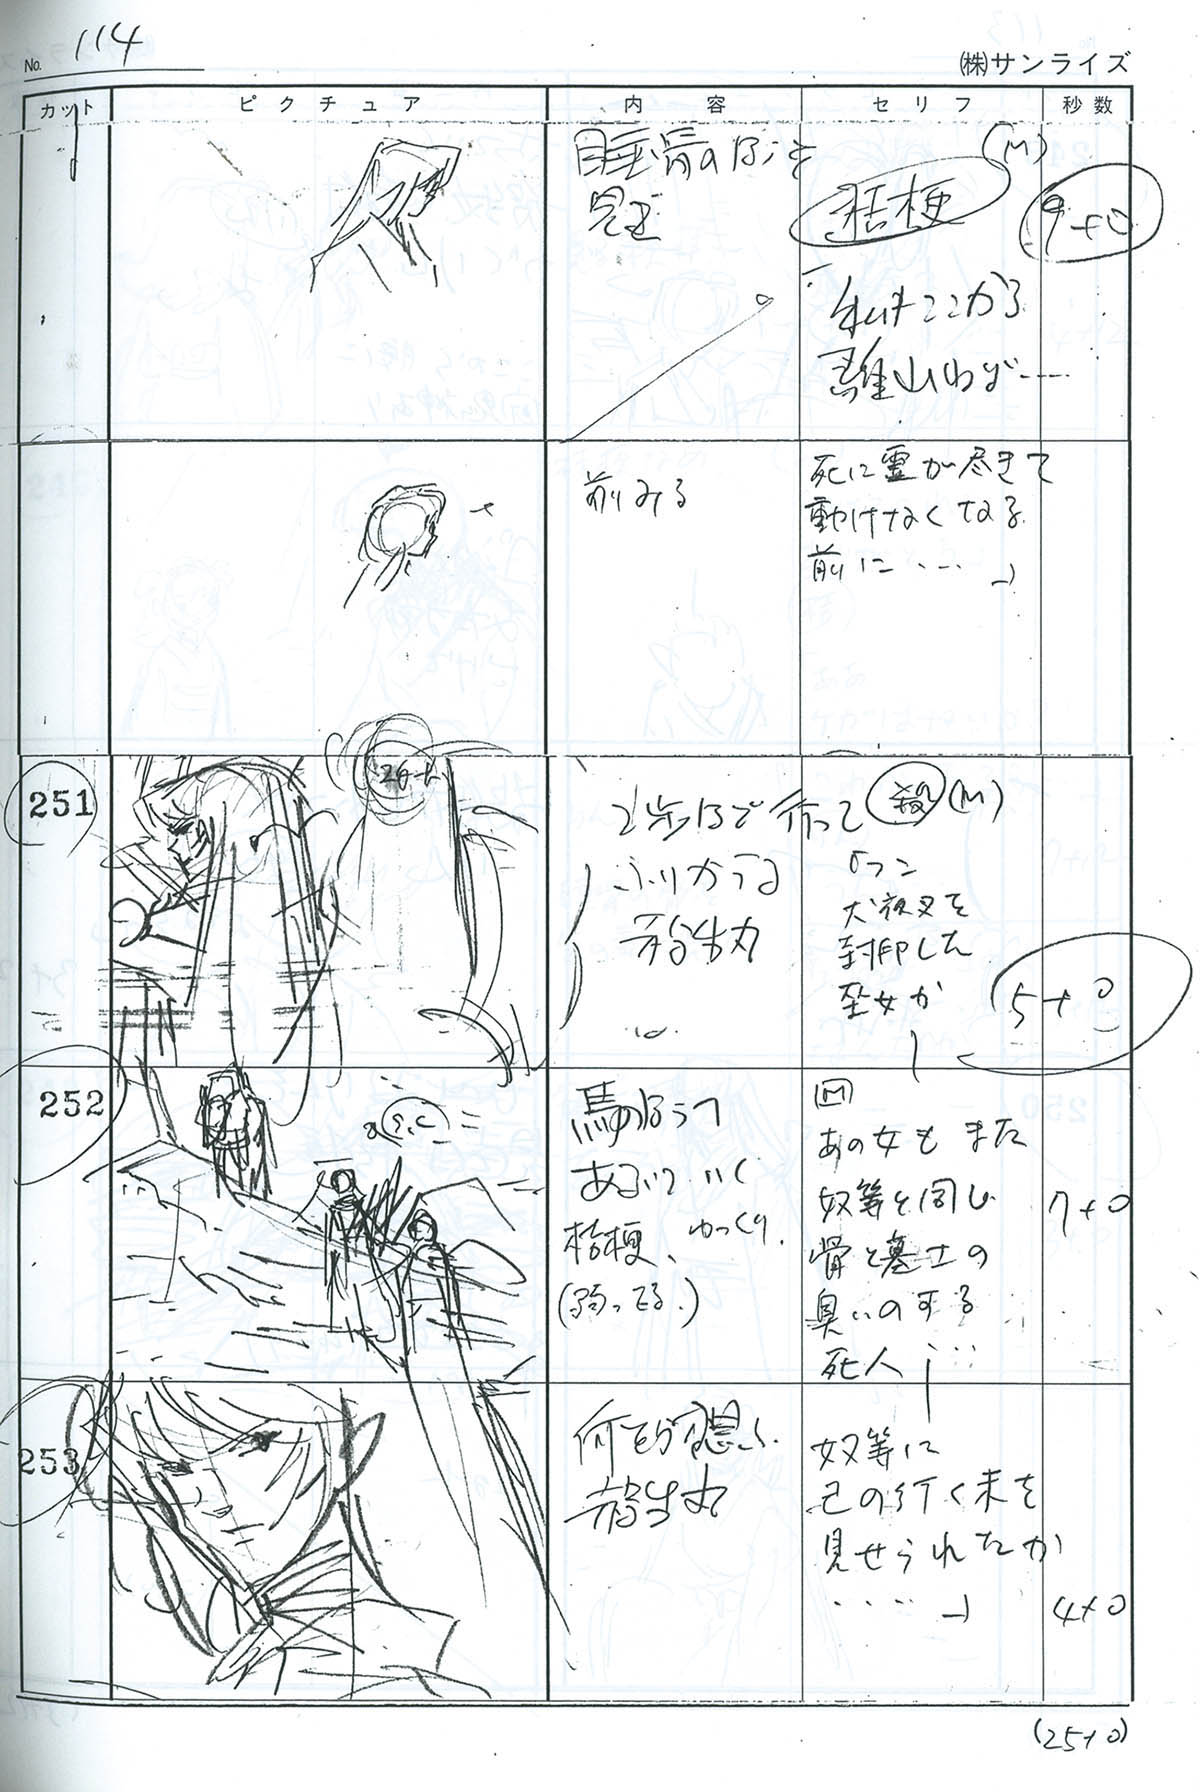 No. 114
(株)サンライズ
カット ピクチュア 内容 セリフ 秒数
見て
(M)
桔梗
9+0
「私もここから
離れねば……
前みる
死に霊が尽きて
動けなくなる
前に……」
251
2歩ほど行って
ふりかえる
殺生丸
殺 (M)
「フン
犬夜叉を
封印した
巫女か
5+0
252
あるいていく
桔梗、ゆっくり.
(弱ってる.)
(M)
あの女もまた
奴等と同じ
骨と墓土の
臭いのする
死人…
7+0
253
何をか思う.
殺生丸
奴等に
己の行く末を
見せられたか
……」
4+0
(25+0)